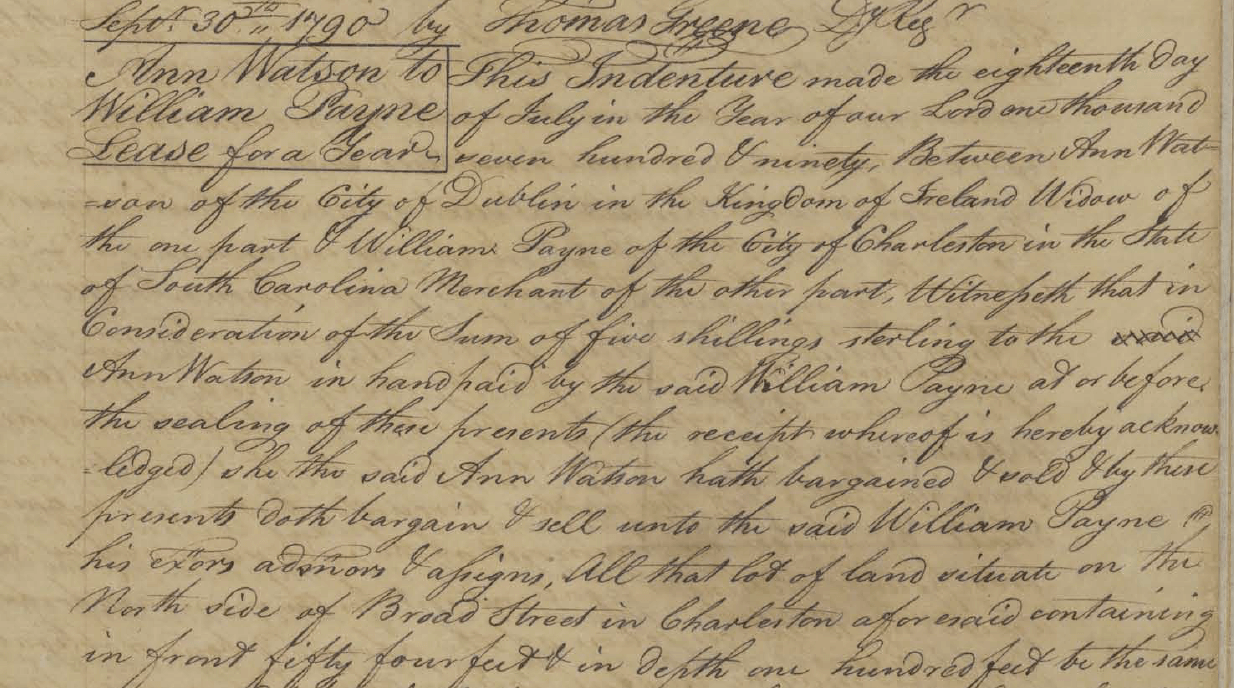 Septr. 30th 1790 by Thomas Greene Dy Regr
Ann Watson to
William Payne
Lease for a Year
This Indenture made the eighteenth day
of July in the Year of our Lord one thousand
seven hundred & ninety, Between Ann Wat-
=son of the City of Dublin in the Kingdom of Ireland Widow of
the one part & William Payne of the City of Charleston in the State
of South Carolina Merchant of the other part, Witnesseth that in
Consideration of the Sum of five shillings sterling to the said
Ann Watson in hand paid by the said William Payne at or before
the sealing of these presents (the receipt whereof is hereby acknow-
=ledged) she the said Ann Watson hath bargained & sold & by these
presents doth bargain & sell unto the said William Payne
his exors admors & assigns, All that lot of land situate on the
North side of Broad Street in Charleston aforesaid containing
in front fifty four feet & in depth one hundred feet be the same